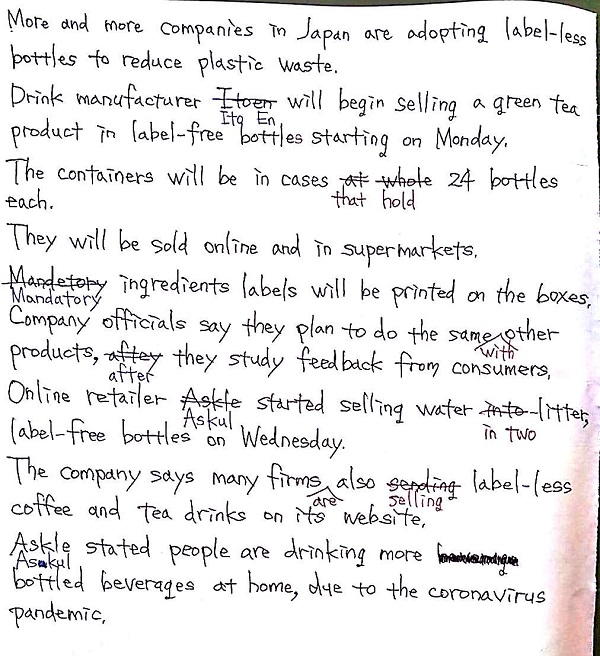 More and more companies in Japan are adopting label-less
bottles to reduce plastic waste.
Drink manufacturer Itoen will begin selling a green tea
Ito En
product in label-free bottles starting on Monday.
The containers will be in cases at whole 24 bottles
that hold
each.
They will be sold online and in supermarkets.
Mandetory ingredients labels will be printed on the boxes.
Mandatory
Company officials say they plan to do the same other
with
products, aftey they study feedback from consumers.
after
Online retailer Askle started selling water into litter,
Askul
in two
label-free bottles on Wednesday.
The company says many firms also sending label-less
are
selling
coffee and tea drinks on its website.
Askle stated people are drinking more
Askul
bottled beverages at home, due to the coronavirus
pandemic.